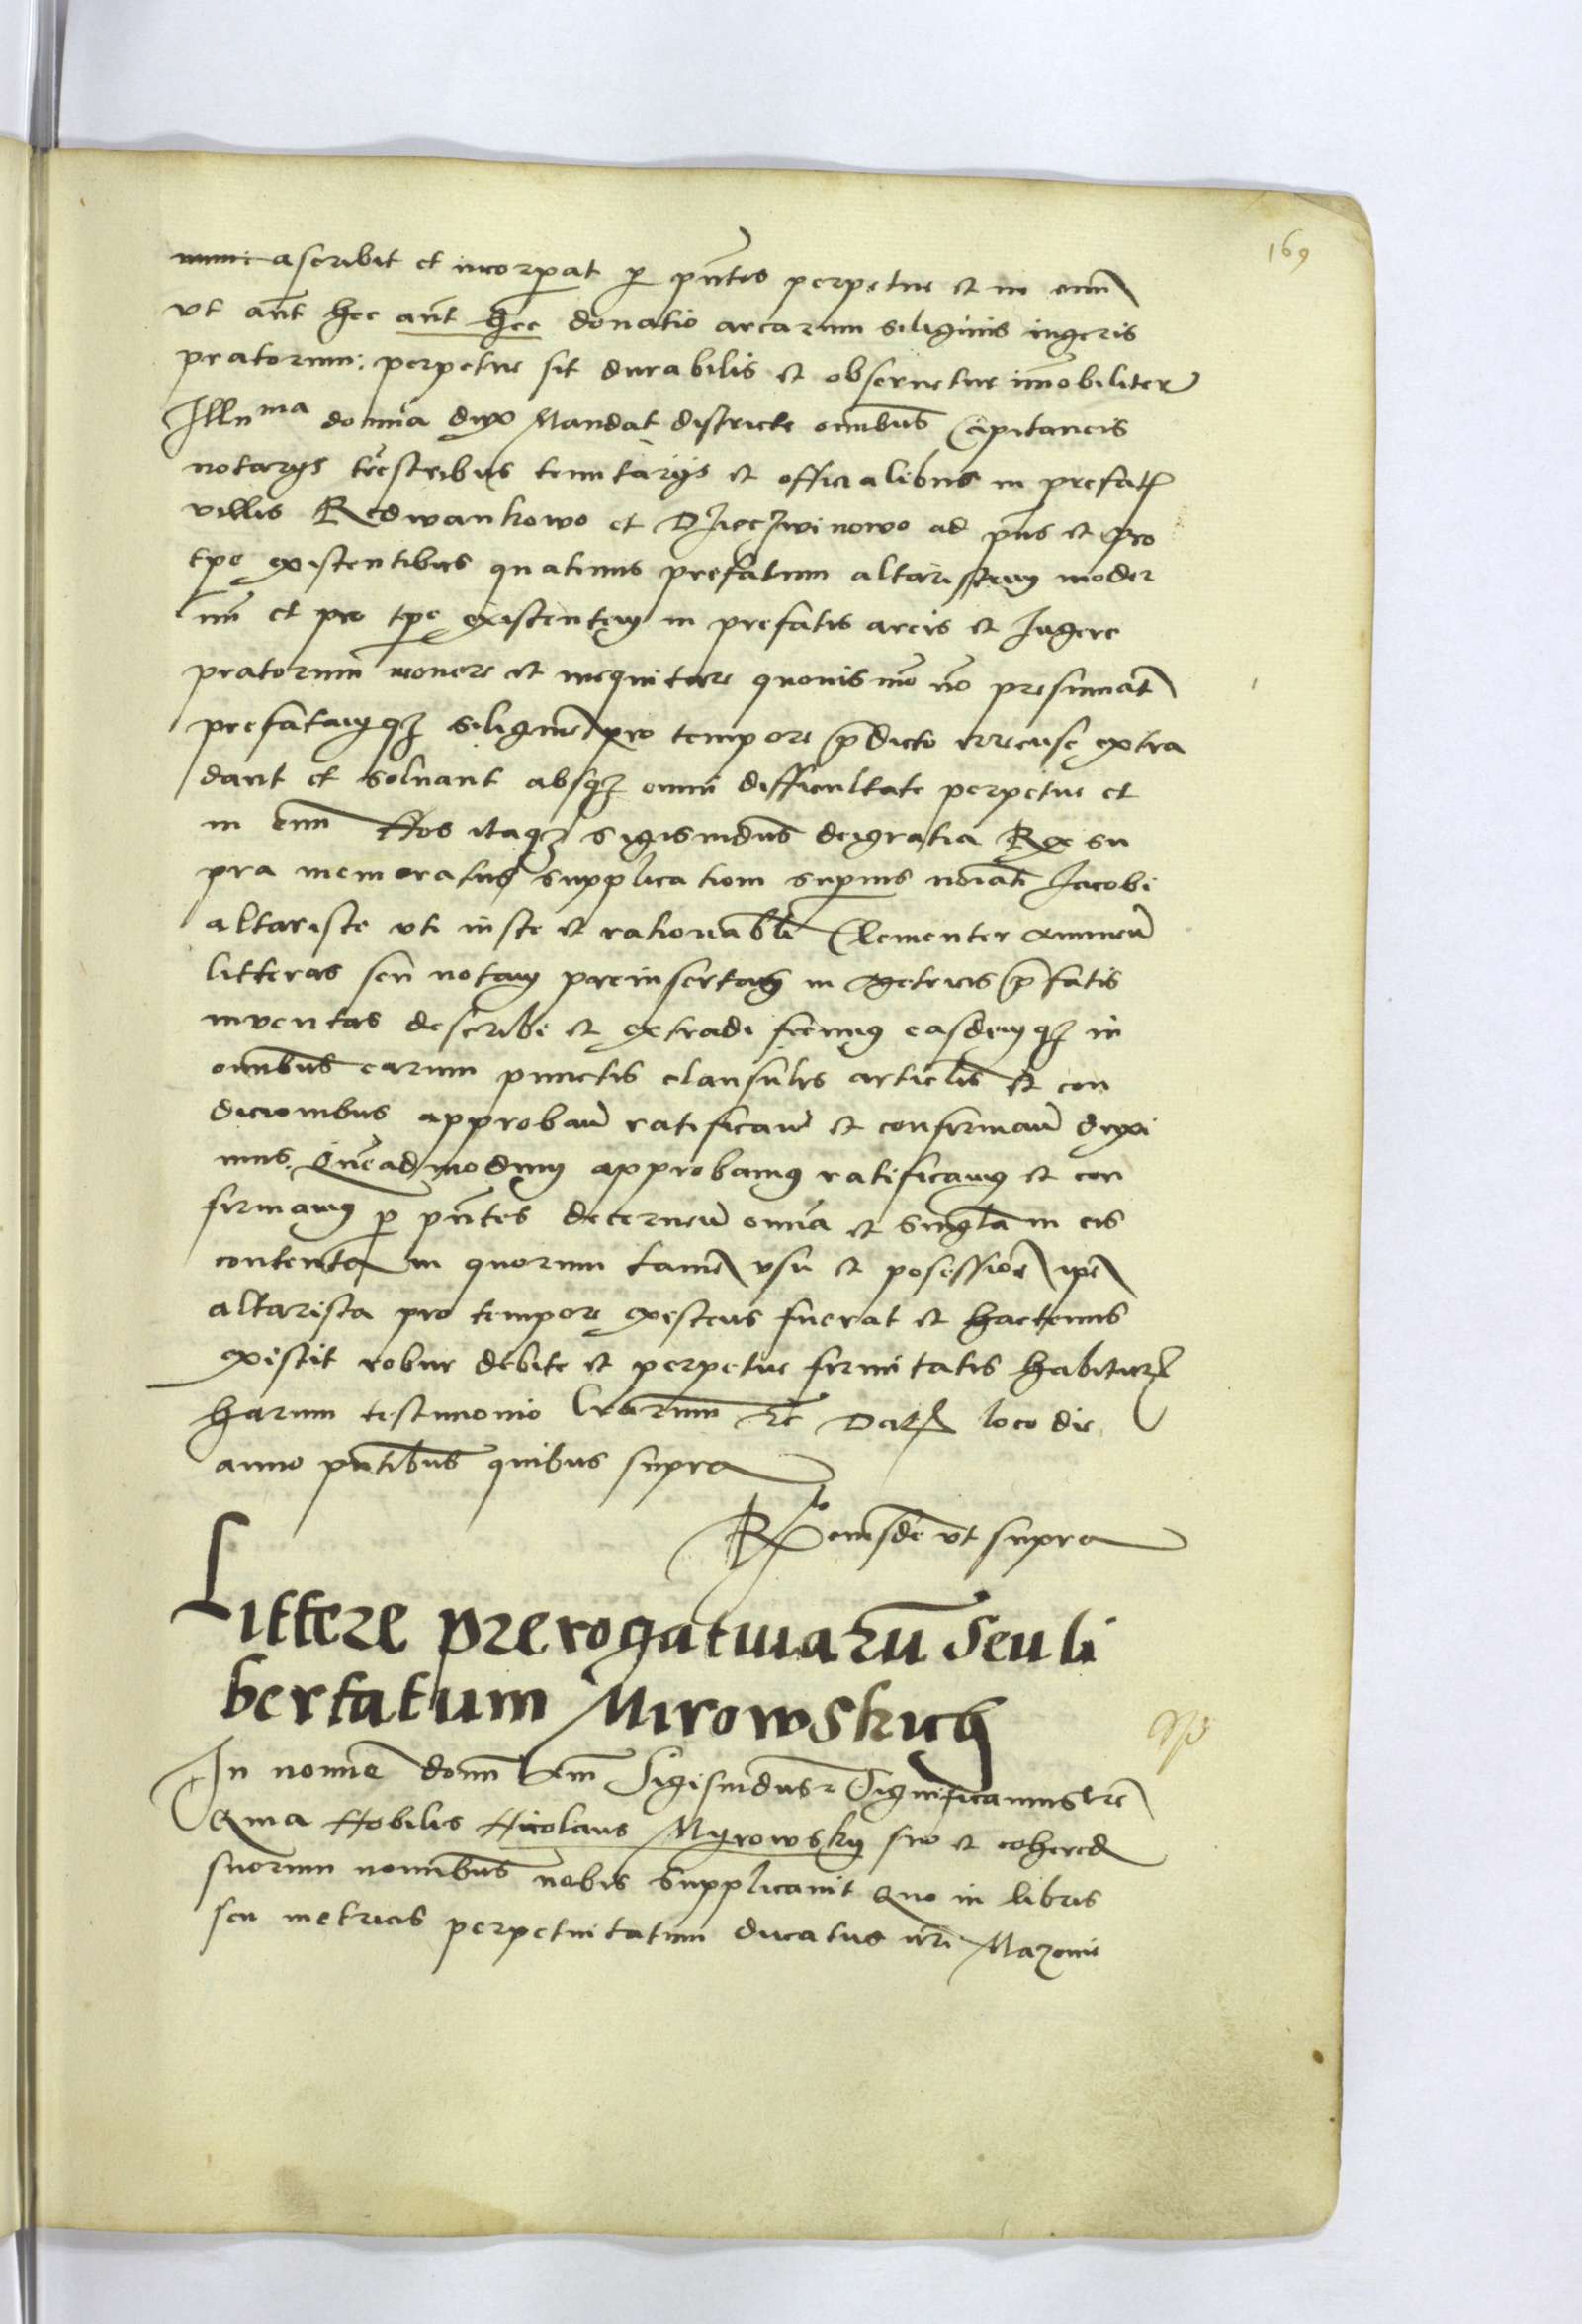 169
nunc ascribit et incorpat p pntes perpetue et in eum
vt ant hec ant hec donatio arearum siliginis iugeris
pratorum: perpetue sit durabilis et obseruetur immobiliter
Illu ma domina dux Mandat districte omibus Capitaneis
notarys trestribus tenutarijs et officialibus in prefat
villis Redwankowo et Dzieczwinowo ad pns et pro
tpe existentibus quatinus prefatum altaristam moder
nu et pro tpe existentem in prefatis areis et Iugere
pratorum mouere et inequitare quouismo no presumat
prefatamqz siligine pro tempore pdicto rrecuse extra
dant et soluant absqz omni difficultate perpetue et
in eum Nos itaqz sigismdus deigratia Rex su
pra memoratus supplicationi superius noiati Jacobi
altariste vti iuste et rationabli Clementer annueu
litteras seu notam preinsertas in metricis pfatis
inuentas describi et extradi fecimus easdemqz in
omibus earum punctis clausulis articlis et con
dicionibus approbau ratificau et confirmau duxi
mus. Queadmodum approbamus ratificamus et con
firmamus p pntes decerneu omia et singla in eis
contenta in quorum tame vsu et posessione ipe
altarista pro tempore existens fuerat et hactenus
existit robur debite et perpetue firmitatis habitur
harum testimonio lrarum etc Dat loco die
anno pntibus quibus supra
Rto eiusde vt supra
Littere prerogatiuaru seu li
bertatum Mirowskich
In nomie domi Am Sigismdus etc Significamus etc
Quia Nobilis Nicolaus Myrowsky suo et cohered
suorum nomibus nobis supplicauit quo in libris
seu metricis perpetuitatum ducatus nri Mazouie